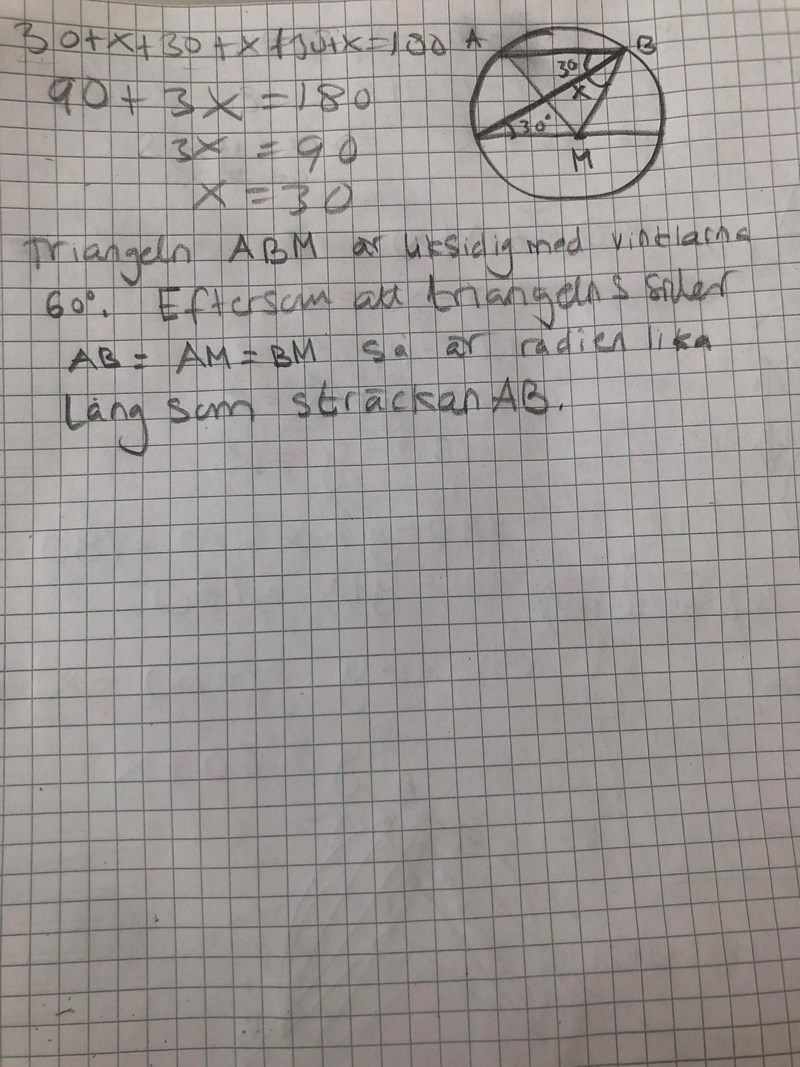 30+x+30+x+30+x=180
90+3x=180
3x=90
x=30
A
B
30°
x
30°
M
Triangeln ABM är liksidig med vinklarna
60°. Eftersom att triangelns sider
AB = AM = BM så är radien lika
Lång som sträckan AB.